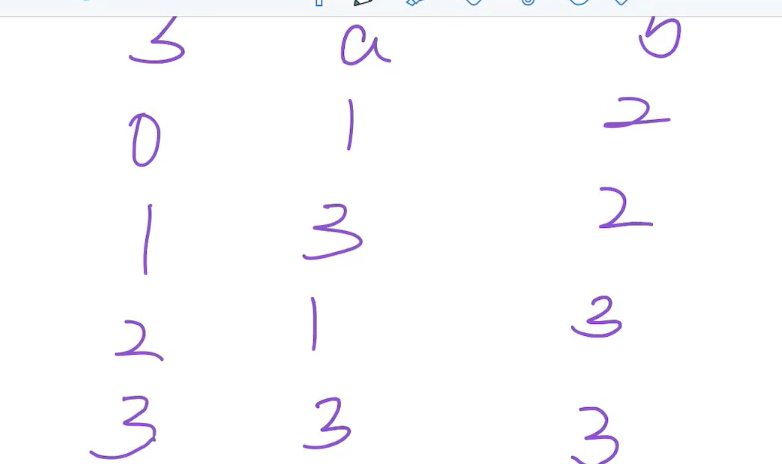 s a b
0 1 2
1 3 2
2 1 3
3 3 3